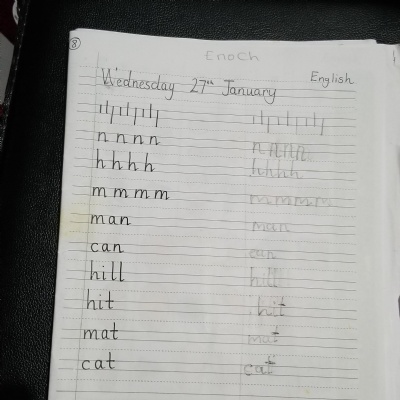 8
Enoch
Wednesday 27th January English
n n n n n n n n
h h h h h h h h
m m m m m m m m m
man man
can can
hill hill
hit hit
mat mat
cat cat